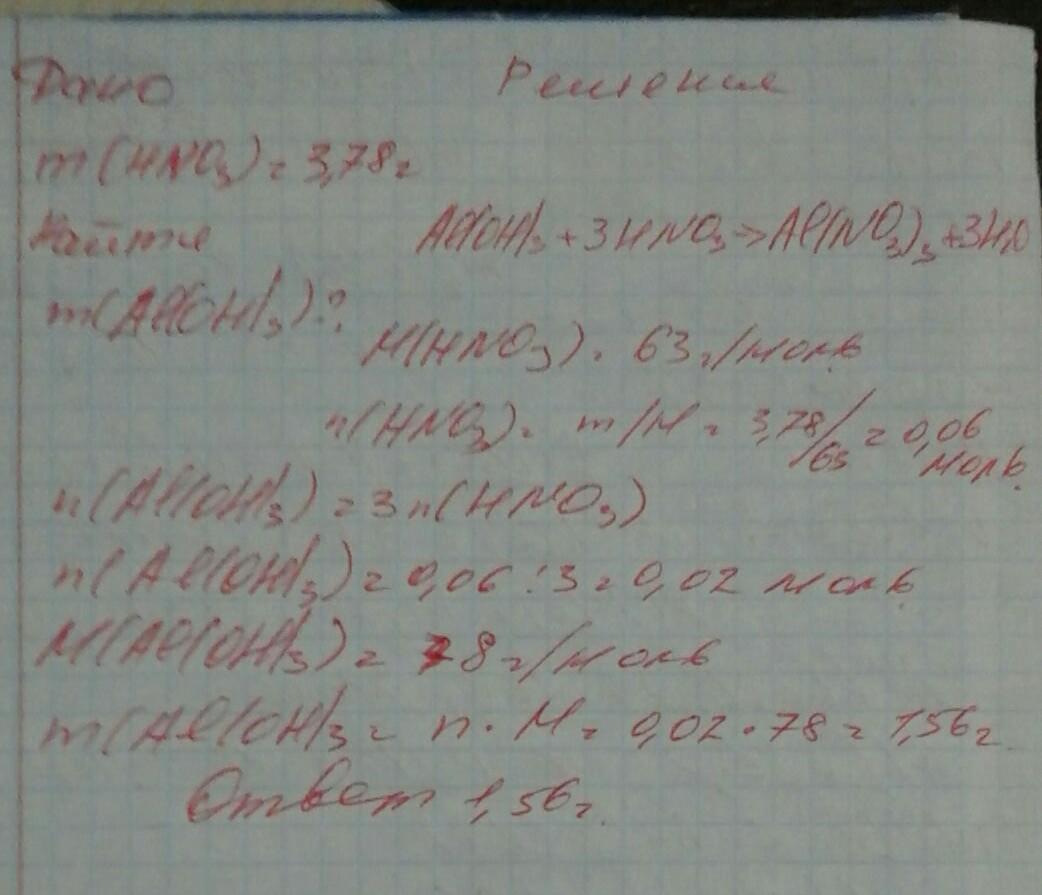 Дано Решение
m(HNO₃) = 3,78г
Найти Al(OH)₃ + 3HNO₃ → Al(NO₃)₃ + 3H₂O
m(Al(OH)₃)?
M(HNO₃) = 63 г/моль
n(HNO₃) = m/M = 3,78/63 = 0,06 моль
n(Al(OH)₃) = 3n(HNO₃)
n(Al(OH)₃) = 0,06 : 3 = 0,02 моль
M(Al(OH)₃) = 78 г/моль
m(Al(OH)₃ = n · M = 0,02 · 78 = 1,56г
Ответ 1,56г.